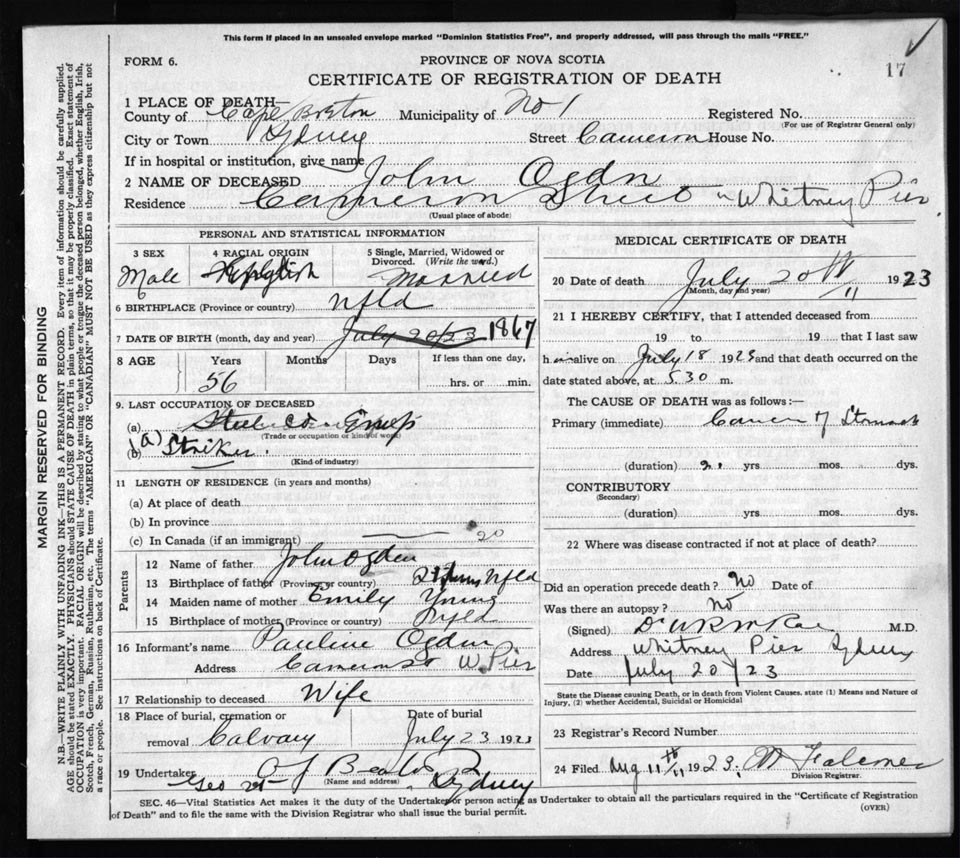 This form if placed in an unsealed envelope marked "Dominion Statistics Free", and properly addressed, will pass through the mails "FREE."
FORM 6.
PROVINCE OF NOVA SCOTIA
17
CERTIFICATE OF REGISTRATION OF DEATH
1 PLACE OF DEATH—
County of Cape Breton Municipality of No 1 Registered No.
(For use of Registrar General only)
City or Town Sydney Street Cameron House No.
If in hospital or institution, give name
2 NAME OF DECEASED John Ogdn
Residence Cameron Street Whitney Pier.
(Usual place of abode)
PERSONAL AND STATISTICAL INFORMATION
3 SEX 4 RACIAL ORIGIN 5 Single, Married, Widowed or
Divorced. (Write the word.)
Male English Married
6 BIRTHPLACE (Province or country) Nfld
7 DATE OF BIRTH (month, day and year) July 20/23 1867
8 AGE Years Months Days If less than one day,
56 hrs. or min.
9. LAST OCCUPATION OF DECEASED
(a) Steel Co
(Trade or occupation or kind of work)
(b) (a) Striker.
(Kind of industry)
11 LENGTH OF RESIDENCE (in years and months)
(a) At place of death
(b) In province
(c) In Canada (if an immigrant) 20
Parents
12 Name of father John Ogden
13 Birthplace of father (Province or country) Nfld
14 Maiden name of mother Emily Young
15 Birthplace of mother (Province or country) Nfld
16 Informant's name Pauline Ogden
Address Cameron St W. Pier
17 Relationship to deceased Wife
18 Place of burial, cremation or Date of burial
removal Calvary July 23 1923
19 Undertaker
(Name and address)
Geo Sydney
MEDICAL CERTIFICATE OF DEATH
20 Date of death July 20th 1923
(Month, day and year)
21 I HEREBY CERTIFY, that I attended deceased from
19 to 19 that I last saw
him alive on July 18 1923 and that death occurred on the
date stated above, at 5.30 m.
The CAUSE OF DEATH was as follows :—
Primary (immediate) Cancer of Stomach
(duration) 2. yrs mos. dys.
CONTRIBUTORY
(Secondary)
(duration) yrs mos. dys.
22 Where was disease contracted if not at place of death?
Did an operation precede death? No Date of
Was there an autopsy? No
(Signed) Dr M.D.
Address Whitney Pier Sydney
Date July 20/23
State the Disease causing Death, or in death from Violent Causes. state (1) Means and Nature of
Injury, (2) whether Accidental, Suicidal or Homicidal
23 Registrar's Record Number
24 Filed Aug 11th 1923.
Division Registrar.
SEC. 46—Vital Statistics Act makes it the duty of the Undertaker or person acting as Undertaker to obtain all the particulars required in the "Certificate of Registration
of Death" and to file the same with the Division Registrar who shall issue the burial permit.
(OVER)
MARGIN RESERVED FOR BINDING
N.B.—WRITE PLAINLY WITH UNFADING INK—THIS IS A PERMANENT RECORD. Every item of information should be carefully supplied.
AGE should be stated EXACTLY. PHYSICIANS should STATE CAUSE OF DEATH in plain terms, so that it may be properly classified. Exact statement of
OCCUPATION is very important. RACIAL ORIGIN will be described by stating to what people or tongue the deceased person belonged, whether English, Irish,
Scotch, French, German, Russian, Ruthenian, etc. The terms "AMERICAN" OR "CANADIAN" MUST NOT BE USED as they express citizenship but not
a race or people. See instructions on back of Certificate.